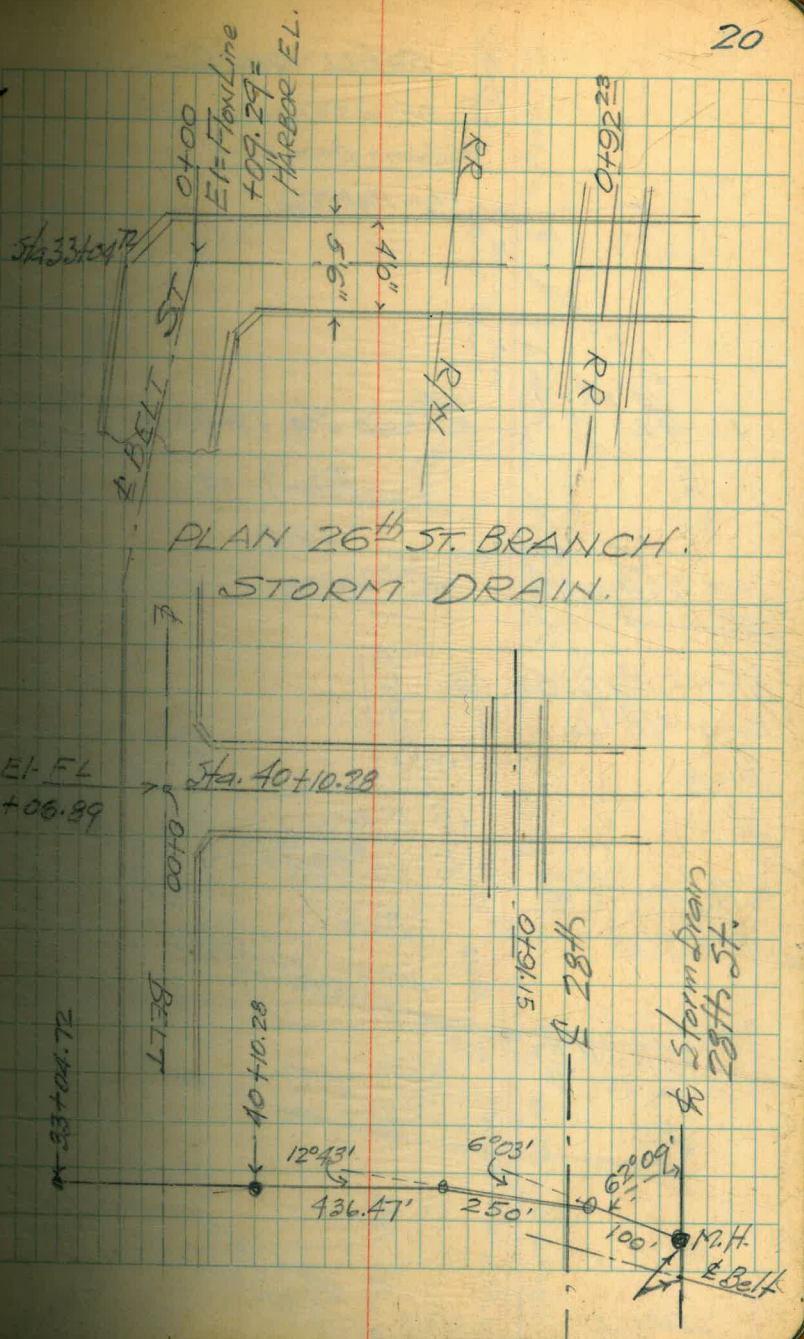 20
0+00
El=Flow Line
+09.29=
HARBOR EL.
Sta 33+04.72
RR
0+92.23
5'6"
4'6"
R/W
RR
℄ BELT ST
PLAN 26th ST. BRANCH.
STORM DRAIN.
℄
El-FL
+06.89
Sta. 40+10.28
0+00
BELT
0+91.15
℄ 28th
℄ Storm Drain
28th St.
33+04.72
40+10.28
12°43'
6°03'
62°09'
436.47'
250'
100'
M.H.
℄ Belt